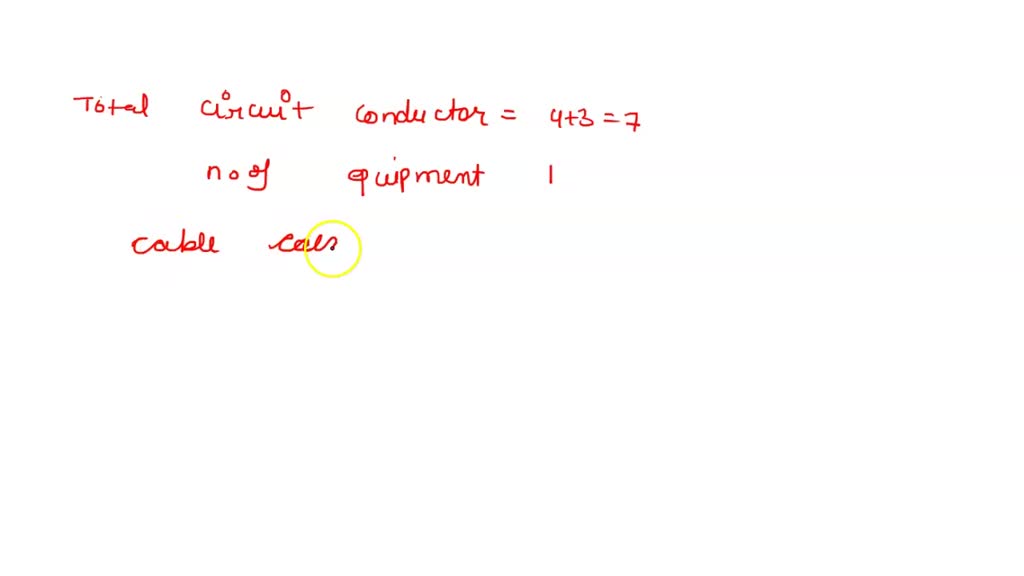 Total circuit conductor = 4+3 = 7
no of equipment 1
cable